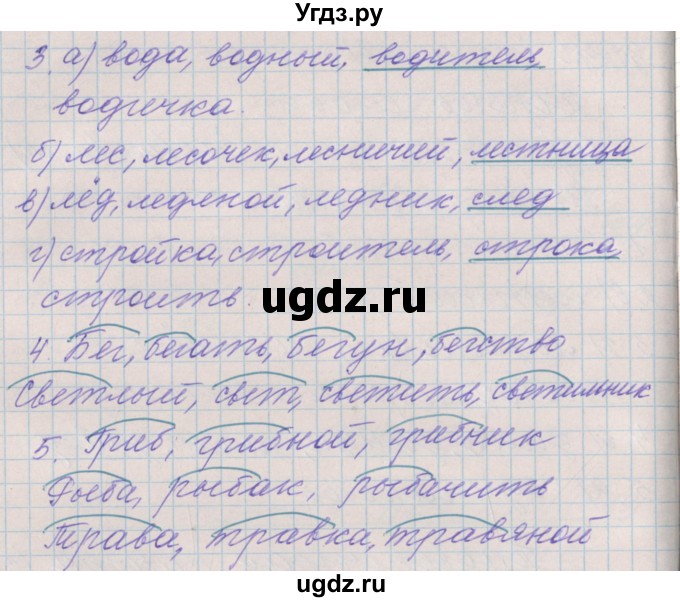 Угдз.ру
3. а) вода, водный, водитель,
водичка.
б) лес, лесочек, лесничий, лестница
в) лёд, ледяной, ледник, след
г) стройка, строитель, строка,
строить.
ugdz.ru
4. Бег, бегать, бегун, бегство
Светлый, свет, светить, светильник
5. Гриб, грибной, грибник
Рыба, рыбак, рыбачить
Трава, травка, травяной
ugdz.ru